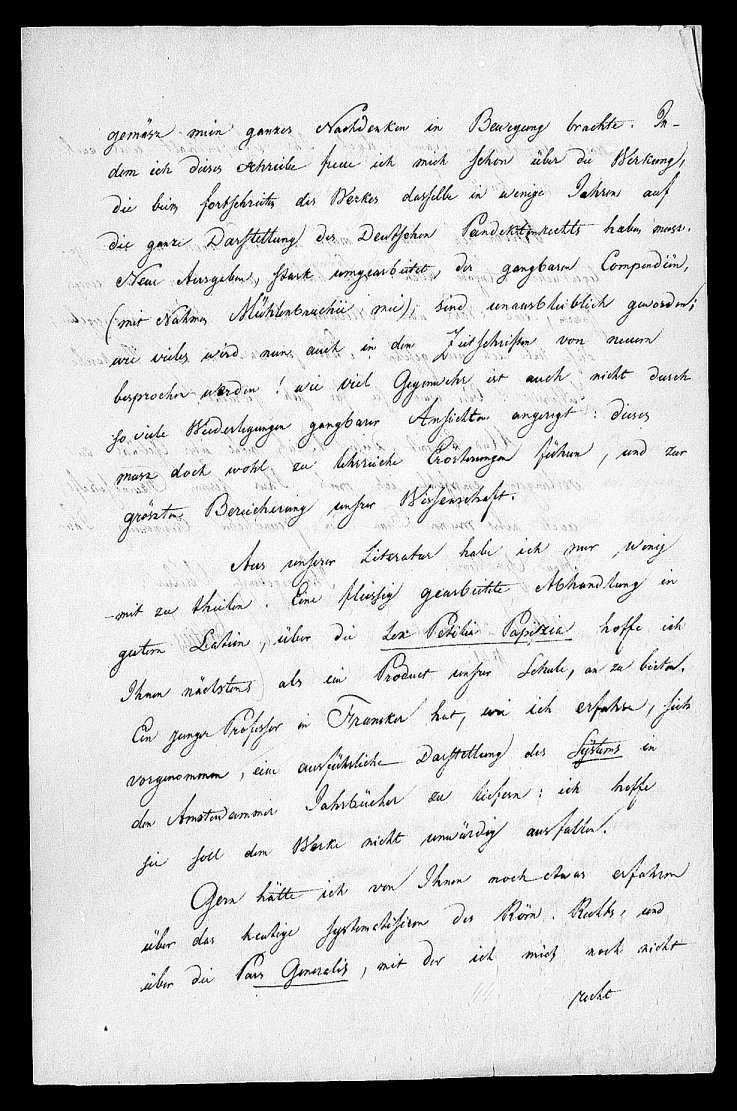 gemäsz mein ganzes Nachdenken in Bewegung brachte. In-
dem ich dieses schreibe freue ich mich schon über die Werkung,
die beim fortschreiten des Werkes dasselbe in wenige Jahren auf
die ganze Darstellung des Deutschen Pandektenrechts haben musz.
Neue Ausgaben, stark umgearbeitet, der gangbaren Compendien,
(mit Nahmen Mühlenbruchii mei), sind unausbleiblich geworden;
wie vieles wird nun auch in den Zeitschriften von neuem
besprochen werden! wie viel Gegenwehr ist auch nicht durch
so viele Wiederlegungen gangbarer Ansichten angeregt: dieses
musz doch wohl zu lehrreiche Erörterungen führen, und zur
gröszten Bereicherung unsrer Wissenschaft.
Aus unserer Literatur habe ich nur wenig
mit zu theilen. Eine fleissig gearbeitete Abhandlung in
gutem Latein, über die Lex Petilia Papiria hoffe ich
Ihnen nächstens als ein Product unsrer Schule, an zu bieten.
Ein junger Professor in Franeker hat, wie ich erfahre, sich
vorgenommen, eine ausführliche Darstellung des Systems in
den Amsterdammer Jahrbücher zu liefern: ich hoffe
sie soll dem Werke nicht unwürdig ausfallen.
Gern hätte ich von Ihnen noch etwas erfahren
über das heutige systematisiren des Röm. Rechts, und
über die Pars Generalis, mit der ich mich noch nicht
recht